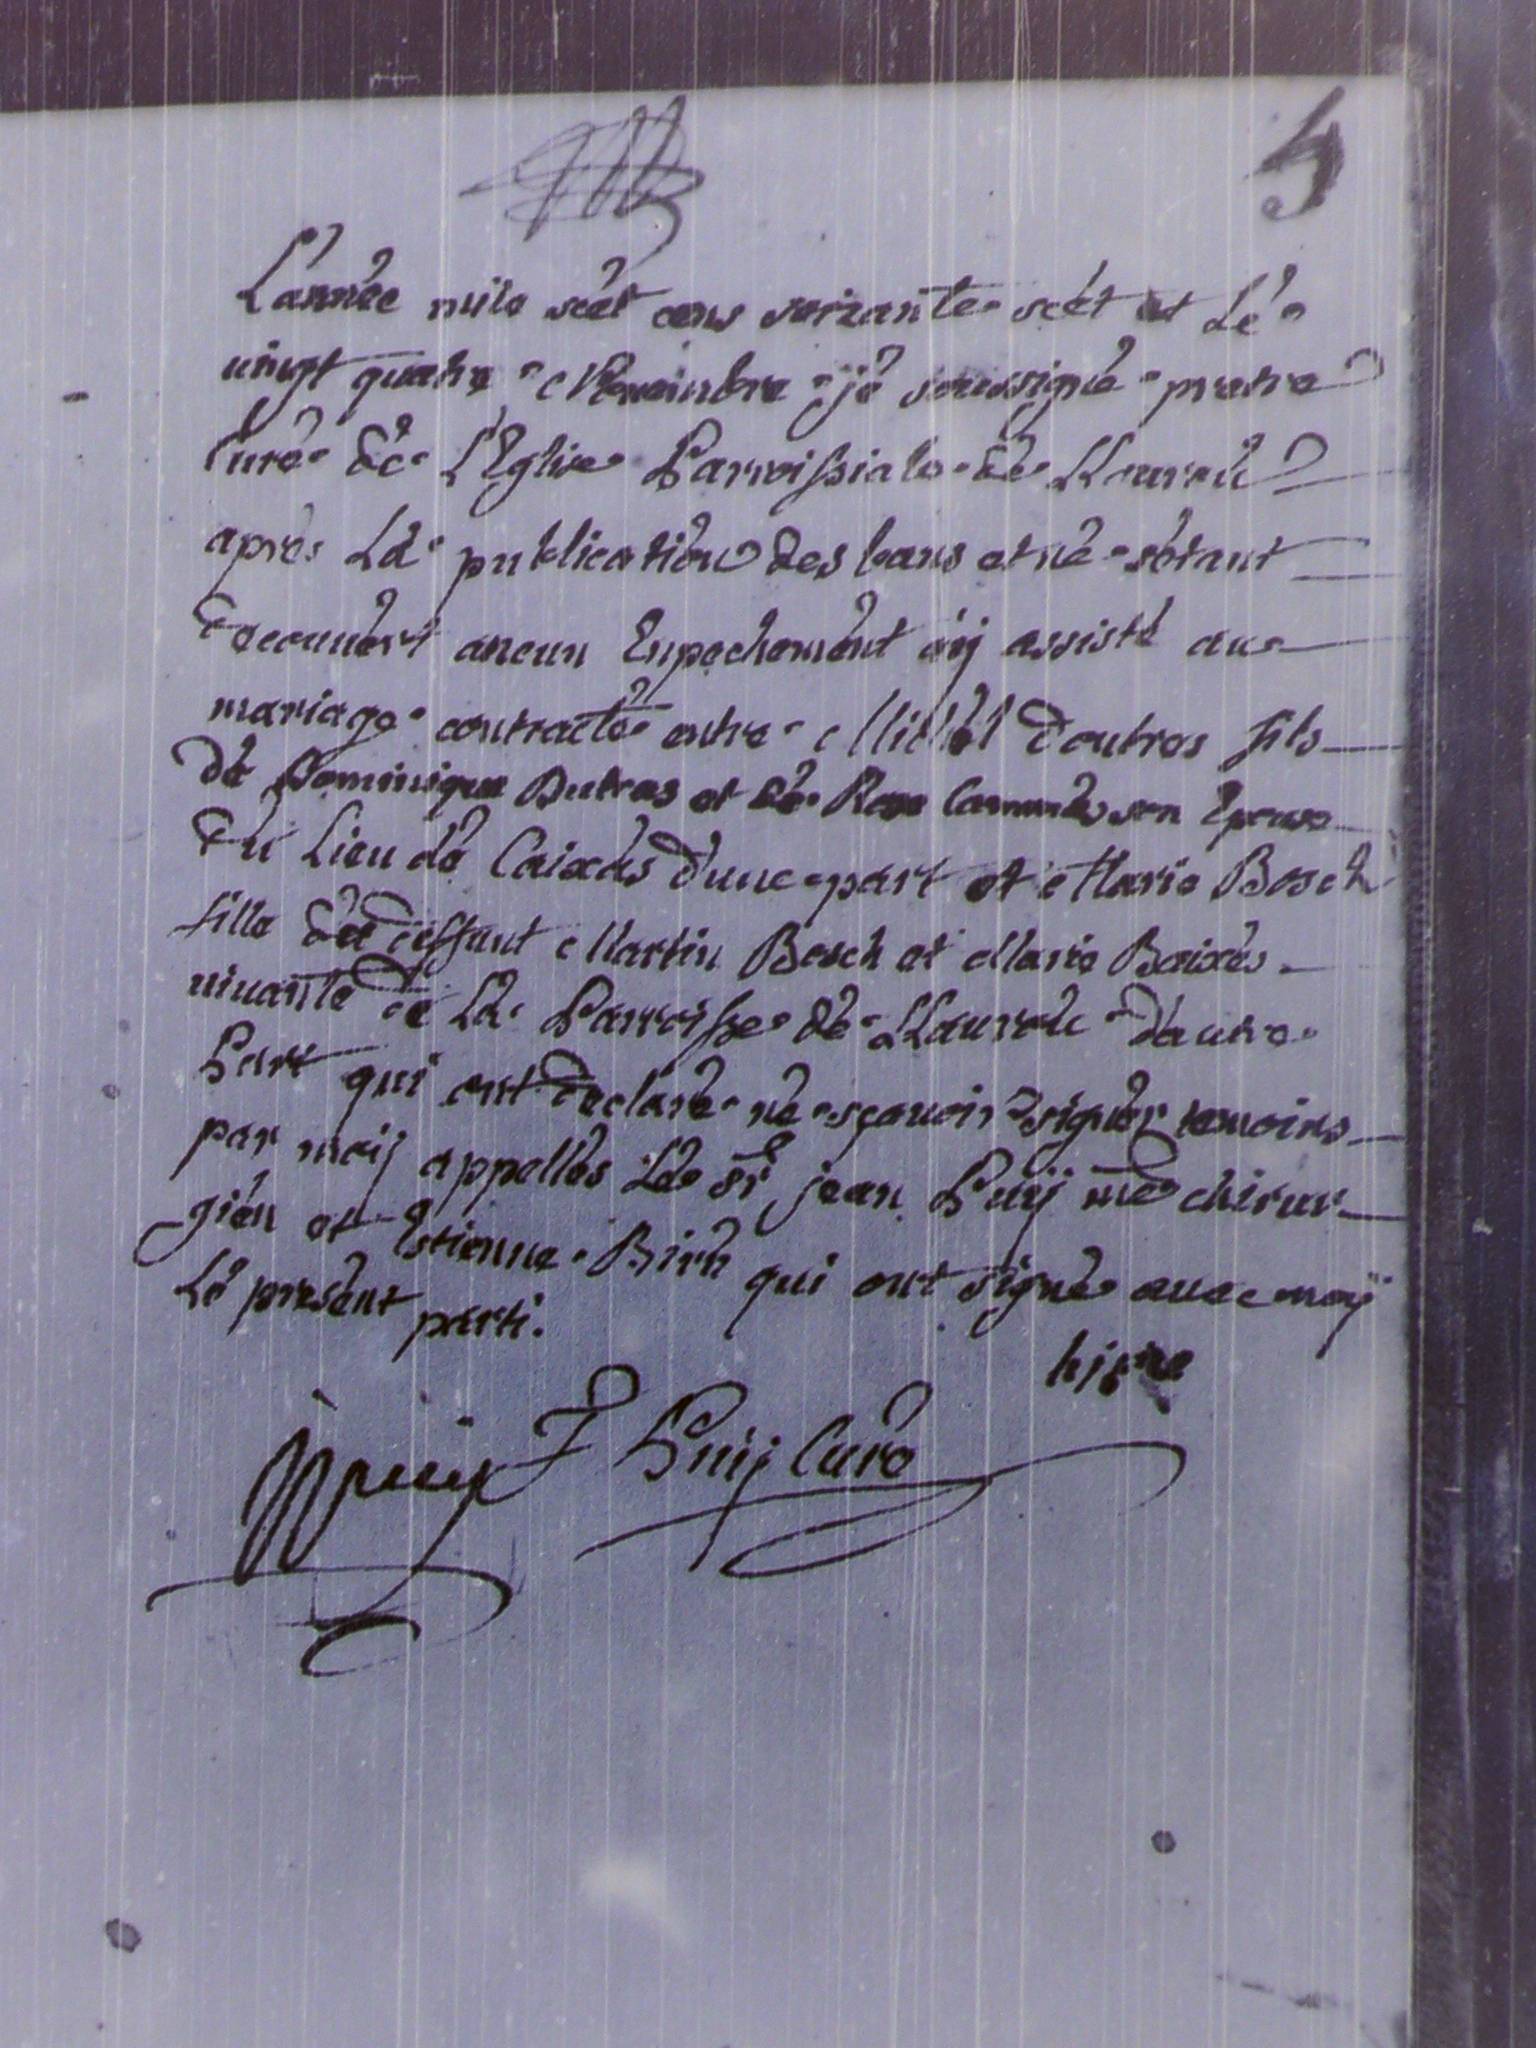 5
L'année mile séet cens soixante séet et lé
vingt quatre Novembre jé soussigné pretre
Curé dé L'Eglise Parroissiale dé Llauró
aprés La publication des bans et né sétant
découvért aucun Enpechemént aÿ assisté au
mariage contracté entre Michél doutres fils
dé Dominique Dutras et dé Rose son Epouse
du Lieu dé Caixas d'une part et Marie Bosch
fille deffunt Martin Bosch et Marie Baixés
vivante de La Parroisse dé Llauró d'autre
Part qui ont déclaré né sçavoir signér temoins
par moÿ appellés Lé sr jean Puig me chirur
gién et Estienne qui ont signé avec moÿ
Lé présént parti.
Puig Curé